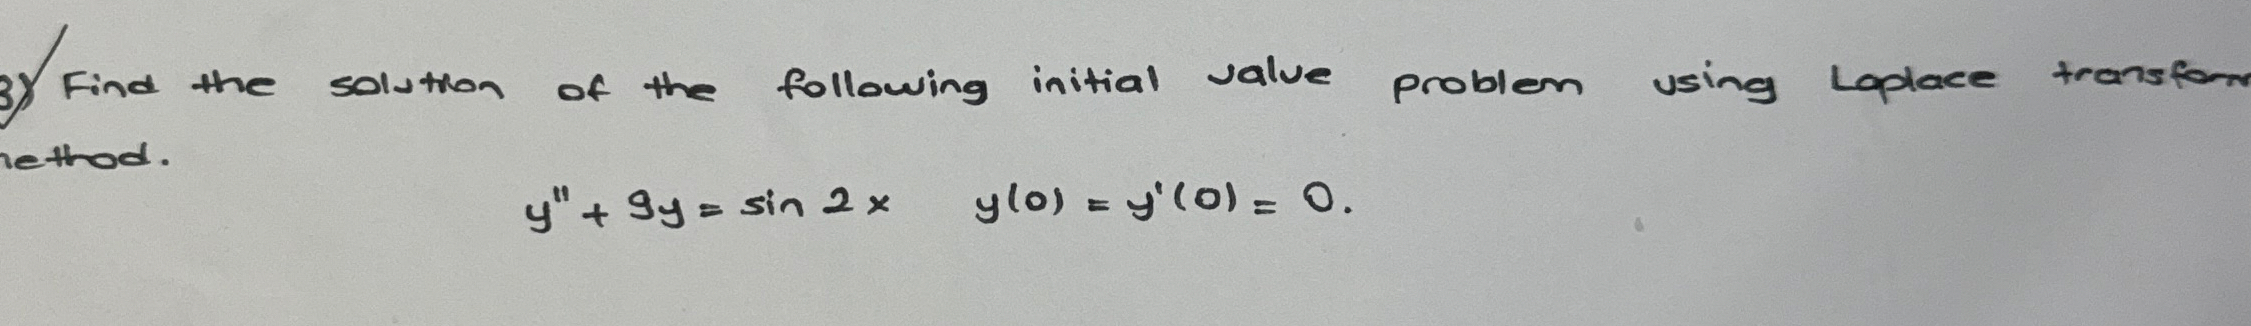 3) Find the solution of the following initial value problem using Laplace transform
method.
y" + 9y = sin 2x y(0) = y'(0) = 0.